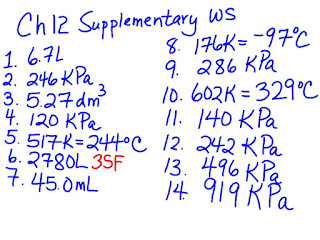 Ch12 Supplementary WS
1. 6.7L
2. 246 KPa
3. 5.27 dm³
4. 120 KPa
5. 517K = 244°C
6. 2780L 3SF
7. 45.0mL
8. 176K = -97°C
9. 286 KPa
10. 602K = 329°C
11. 140 KPa
12. 242 KPa
13. 496 KPa
14. 919 KPa